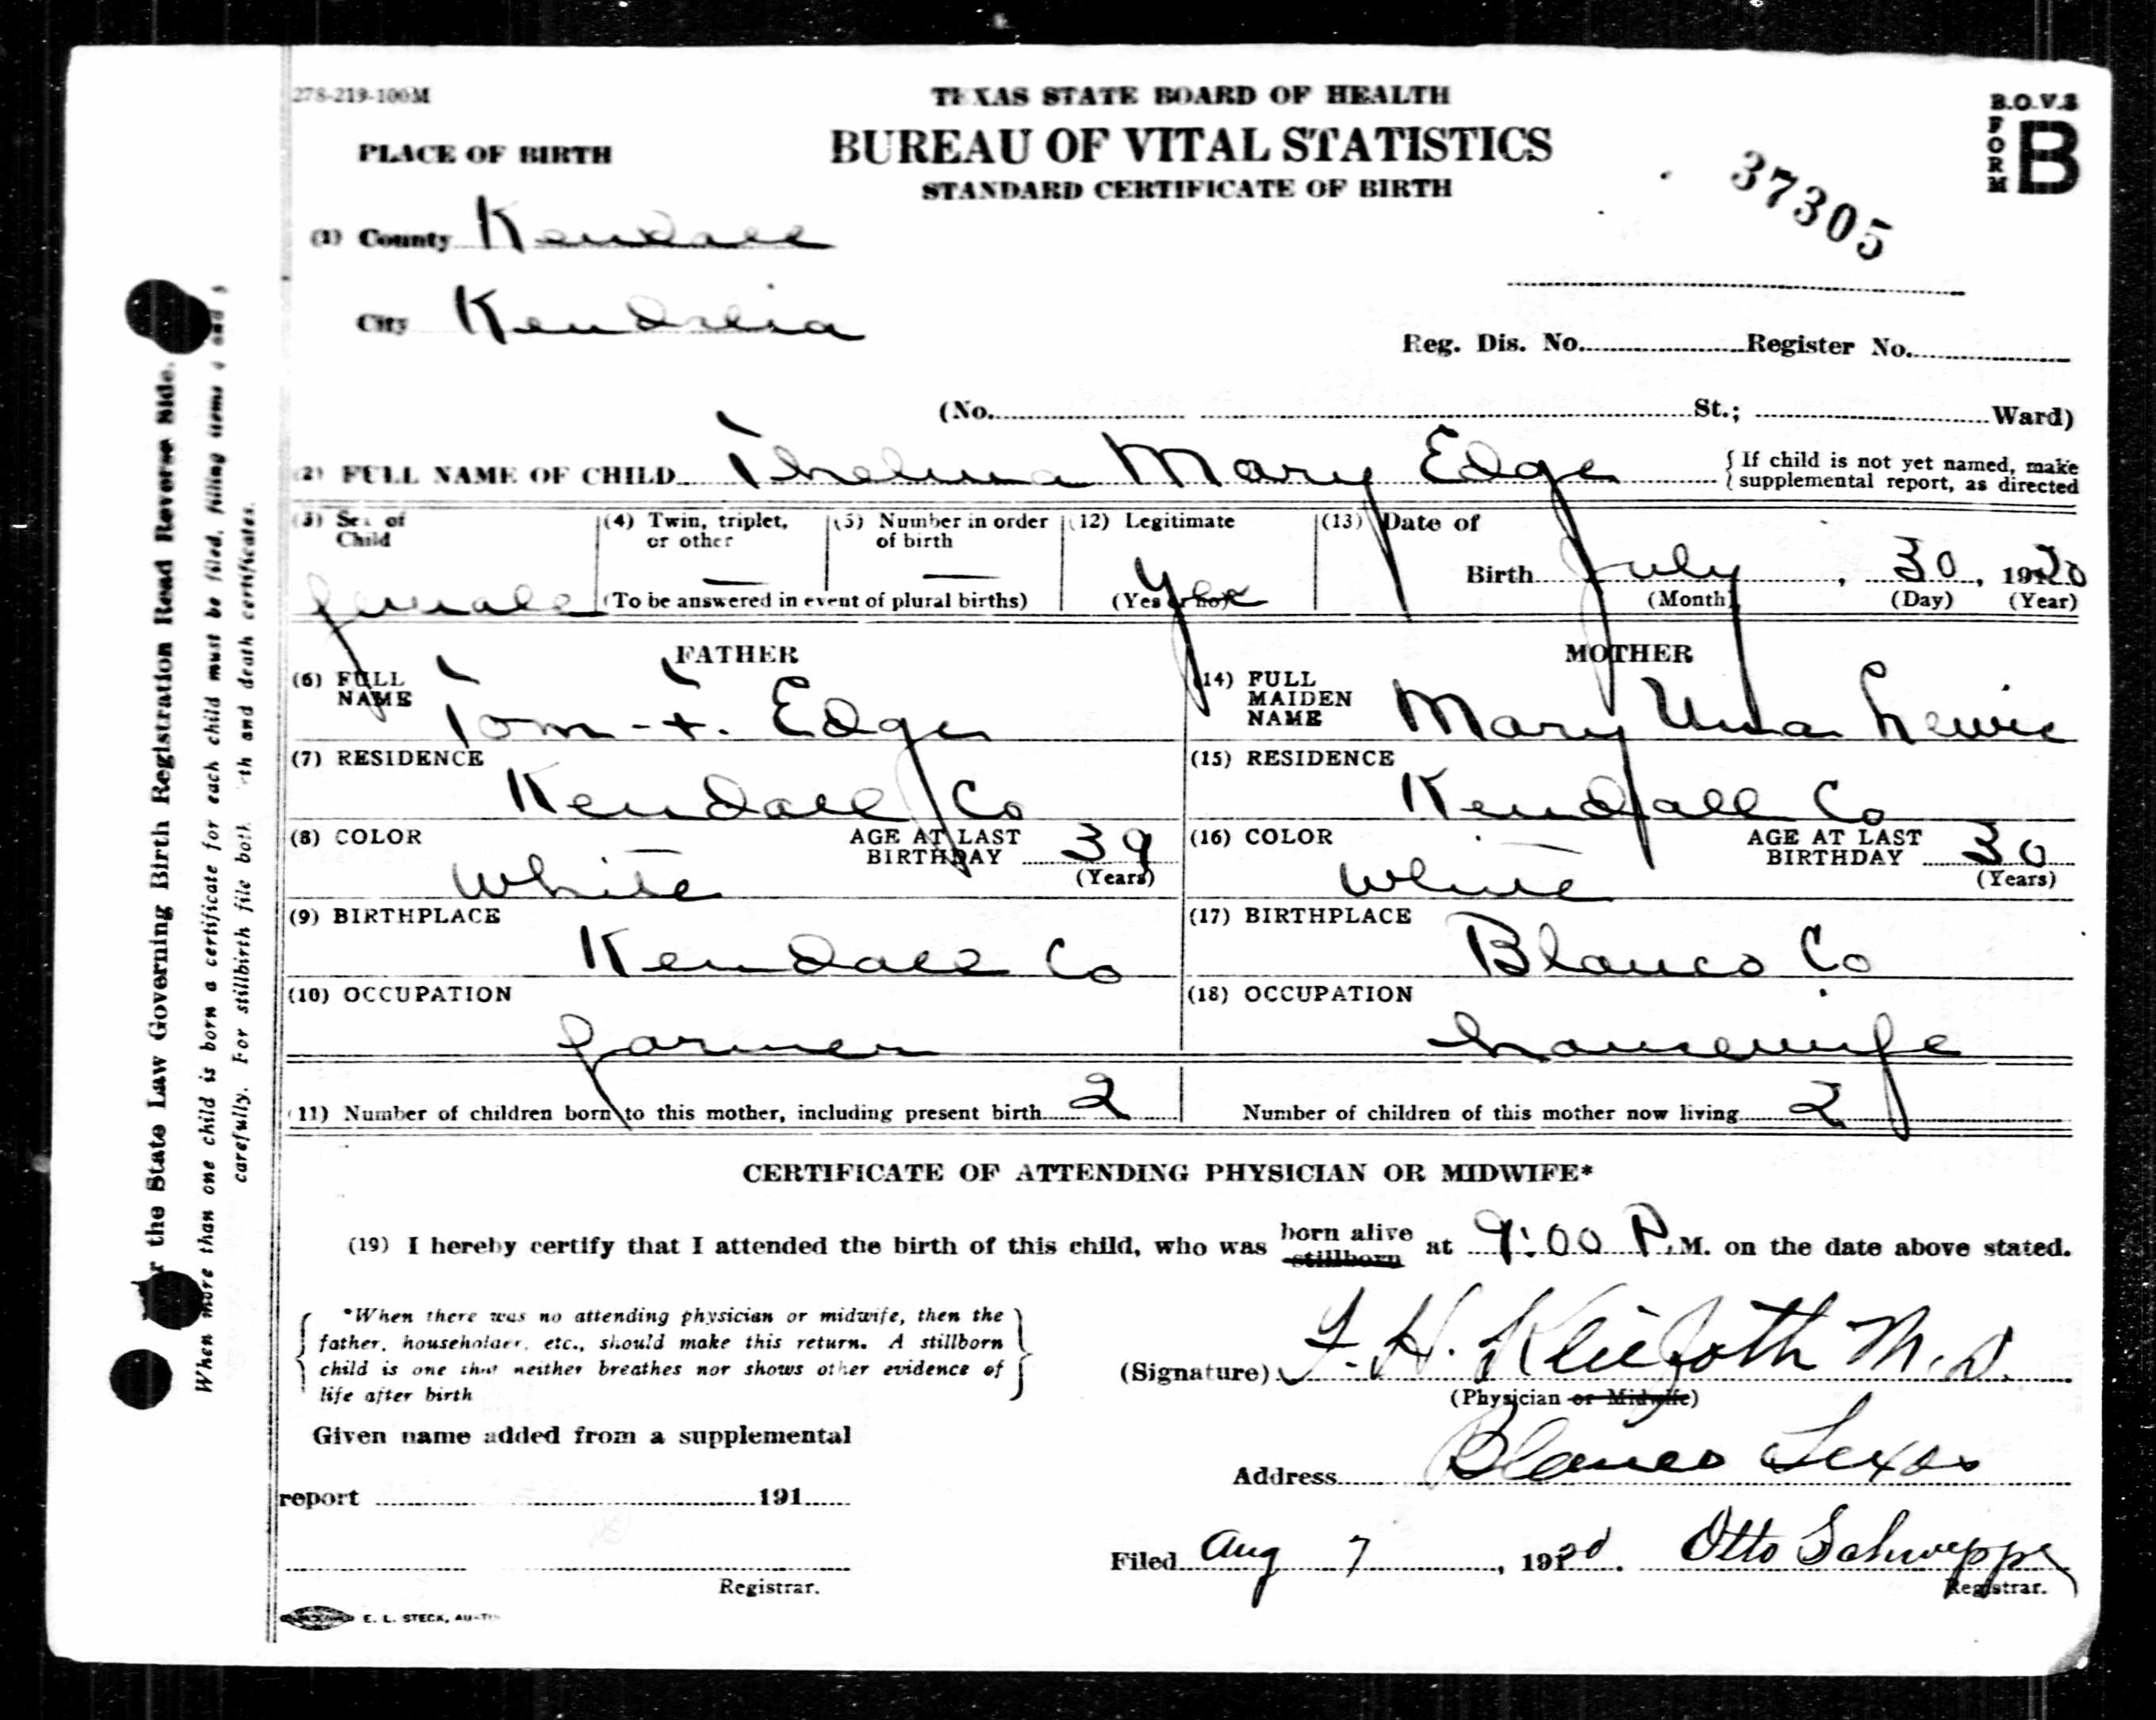 278-219-100M
TEXAS STATE BOARD OF HEALTH
BUREAU OF VITAL STATISTICS
STANDARD CERTIFICATE OF BIRTH
B.O.V.S
FORM B
37305
PLACE OF BIRTH
(1) County Kendall
City Kendalia
Reg. Dis. No. Register No.
(No. St.; Ward)
(2) FULL NAME OF CHILD Thelma Mary Edge { If child is not yet named, make
supplemental report, as directed
(3) Sex of Child female
(4) Twin, triplet, or other —
(5) Number in order of birth —
(To be answered in event of plural births)
(12) Legitimate Yes
(Yes or no)
(13) Date of
Birth July, 30, 1920
(Month) (Day) (Year)
FATHER
(6) FULL NAME Tom F. Edge
(7) RESIDENCE Kendall Co
(8) COLOR White AGE AT LAST BIRTHDAY 39
(Years)
(9) BIRTHPLACE Kendall Co
(10) OCCUPATION farmer
MOTHER
(14) FULL MAIDEN NAME Mary Lewis
(15) RESIDENCE Kendall Co
(16) COLOR White AGE AT LAST BIRTHDAY 30
(Years)
(17) BIRTHPLACE Blanco Co
(18) OCCUPATION housewife
(11) Number of children born to this mother, including present birth 2
Number of children of this mother now living 2
CERTIFICATE OF ATTENDING PHYSICIAN OR MIDWIFE*
(19) I hereby certify that I attended the birth of this child, who was born alive stillborn at 9:00 P.M. on the date above stated.
*When there was no attending physician or midwife, then the
father, householder, etc., should make this return. A stillborn
child is one that neither breathes nor shows other evidence of
life after birth
(Signature) F. H. Kliefoth M.D.
(Physician or Midwife)
Given name added from a supplemental
report 191
Address Blanco Texas
Filed Aug 7, 1920. Otto Schweppe
Registrar. Registrar.
E. L. STECK, AUSTIN
the State Law Governing Birth Registration Read Reverse Side.
When more than one child is born a certificate for each child must be filed, filling items 4 and 5
carefully. For stillbirth file both th and death certificates.